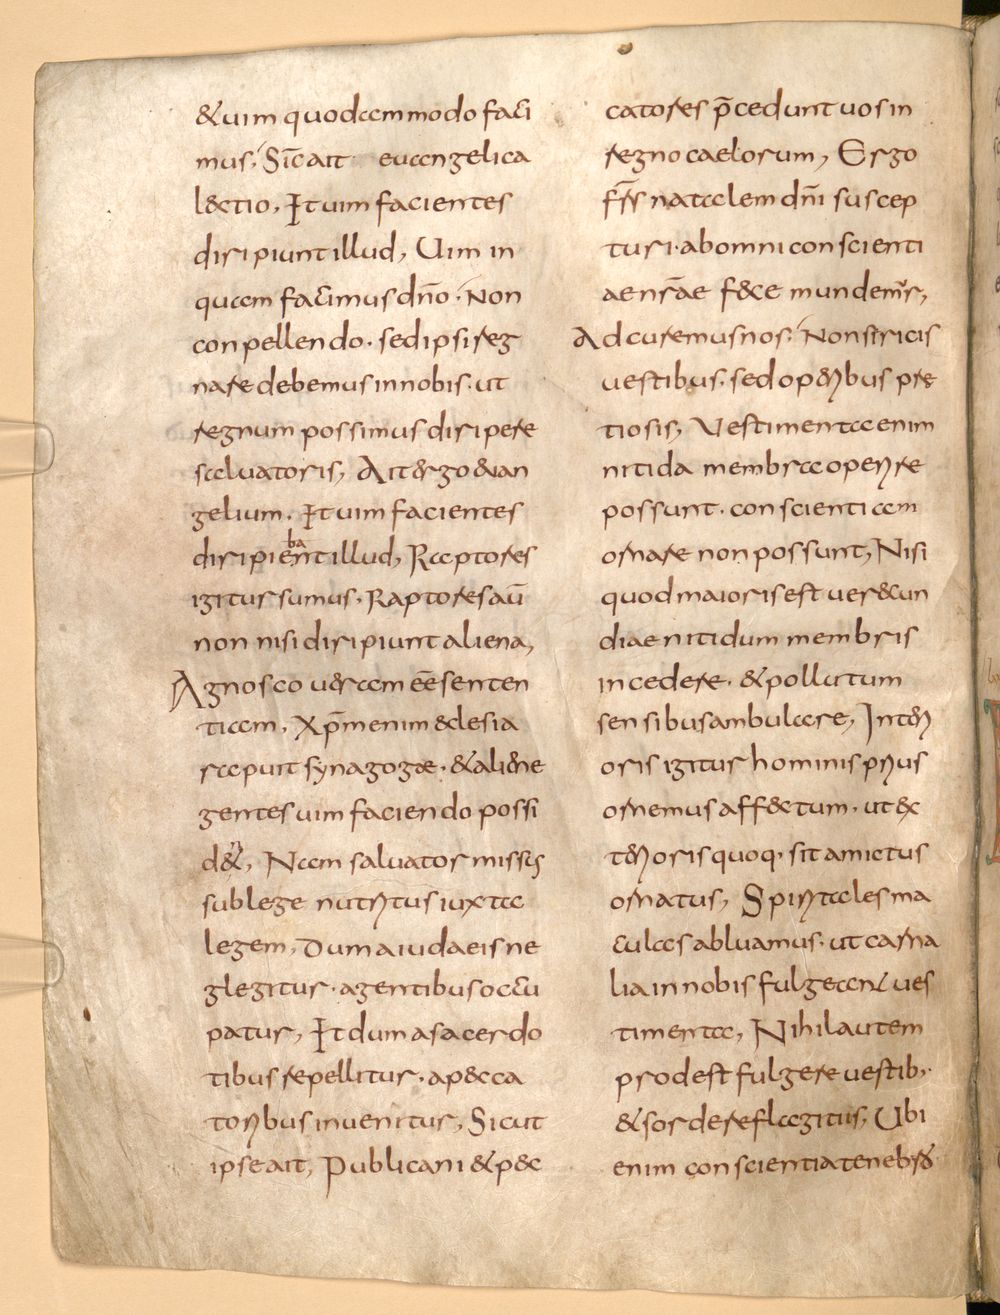 &uim quodammodo faci
mus, Sic̄ ait euangelica
l&ctio, Et uim facientes
diripiunt illud, Uim in
quam facimus dn̄o · Non
conpellendo · sed ipsi reg
nare debemus in nobis · ut
regnum possimus diripere
saluatoris, Ait &rgo &uan
gelium · Et uim facientes
diripiebant illud, Raptores
igitur sumus · Raptores aū
non nisi diripiunt aliena,
Agnosco u&ram ēē senten
tiam, Xp̄m enim &clesia
rapuit synagogæ · & ali&ne
gentes uim faciendo possi
d&, Nam saluator missus
sub lege nutritus iuxta
legem, Dum a iudaeis ne
glegitur · agentibus occu
patur, Et dum a sacerdo
tibus repellitur · a p&cca
toribus inuenitur, Sicut
ipse ait, Publicani & p&c
catores p̄cedunt uos in
regno caelorum, Ergo
fr̄s̄ natalem dn̄i suscep
turi · ab omni conscienti
ae nr̄ae f&ce mundemur,
Ad curemus nos, Non siricis
uestibus, sed op&ribus pre
tiosis, Uestimenta enim
nitida membra operire
possunt · conscientiam
ornare non possunt, Nisi
quod maioris est uer&cun
diae nitidum membris
incedere · & pollutum
sensibus ambulare, Int&ri
oris igitur hominis prius
ornemus aff&ctum · ut &x
t&rioris quoq· sit amictus
ornatus, Spiritales ma
culas abluamus · ut carna
lia in nobis fulgeant ues
timenta, Nihil autem
prodest fulgere uestib·
& sordere flagitiis, Ubi
enim conscientia tenebris